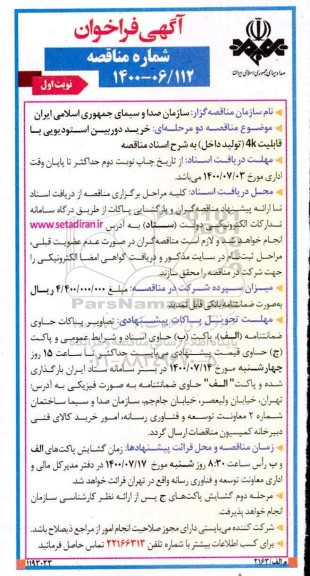 آگهی فراخوان
شماره مناقصه
۱۴۰۰-۰۶/۱۱۲
نوبت اول
صدا و سیمای جمهوری اسلامی ایران
نام سازمان مناقصه‌گزار: سازمان صدا و سیمای جمهوری اسلامی ایران
موضوع مناقصه دو مرحله‌ای: خرید دوربین استودیویی با
قابلیت 4k (تولید داخل) به شرح اسناد مناقصه
مهلت دریافت اسناد: از تاریخ چاپ نوبت دوم حداکثر تا پایان وقت
اداری مورخ ۱۴۰۰/۰۷/۰۳ می‌باشد.
محل دریافت اسناد: کلیه مراحل برگزاری مناقصه از دریافت اسناد
تا ارائه پیشنهاد مناقصه‌گران و بازگشایی پاکات از طریق درگاه سامانه
تدارکات الکترونیکی دولت (ستاد) به آدرس www.setadiran.ir
انجام خواهد شد و لازم است مناقصه‌گران در صورت عدم عضویت قبلی،
مراحل ثبت‌نام در سایت مذکور و دریافت گواهی امضا الکترونیکی را
جهت شرکت در مناقصه را محقق سازند.
میزان سپرده شرکت در مناقصه: مبلغ ۴/۴۰۰/۰۰۰/۰۰۰ ریال
به‌صورت ضمانتنامه بانکی قابل تمدید.
مهلت تحویل پاکات پیشنهادی: تصاویر پاکات حاوی
ضمانتنامه (الف)، پاکت (ب) حاوی اسناد و شرایط عمومی و پاکت
(ج) حاوی قیمت پیشنهادی می‌بایست حداکثر تا ساعت ۱۵ روز
چهارشنبه مورخ ۱۴۰۰/۰۷/۱۴ در سامانه ستاد ایران بارگذاری
شده و پاکت "الف" حاوی ضمانتنامه به صورت فیزیکی به آدرس:
تهران، خیابان ولیعصر، خیابان جام‌جم، سازمان صدا و سیما ساختمان
شماره ۲ معاونت توسعه و فناوری رسانه، امور خرید کالای فنی
دبیرخانه کمیسیون مناقصات ارسال گردد.
زمان مناقصه و محل قرائت پیشنهادها: زمان گشایش پاکت‌های الف
و ب رأس ساعت ۸:۳۰ روز شنبه مورخ ۱۴۰۰/۰۷/۱۷ در دفتر مدیرکل مالی و
اداری معاونت توسعه و فناوری رسانه واقع در تهران قرائت خواهد شد.
مرحله دوم گشایش پاکت‌های ج پس از ارائه نظر کارشناسی سازمان
انجام خواهد پذیرفت.
شرکت کننده می‌بایستی دارای مجوز صلاحیت انجام امور از مراجع ذیصلاح باشد.
برای کسب اطلاعات بیشتر با شماره تلفن ۲۲۱۶۶۳۱۳ تماس حاصل فرمائید.
م الف/۲۱۶۳
۱۱۹۳۰۲۳